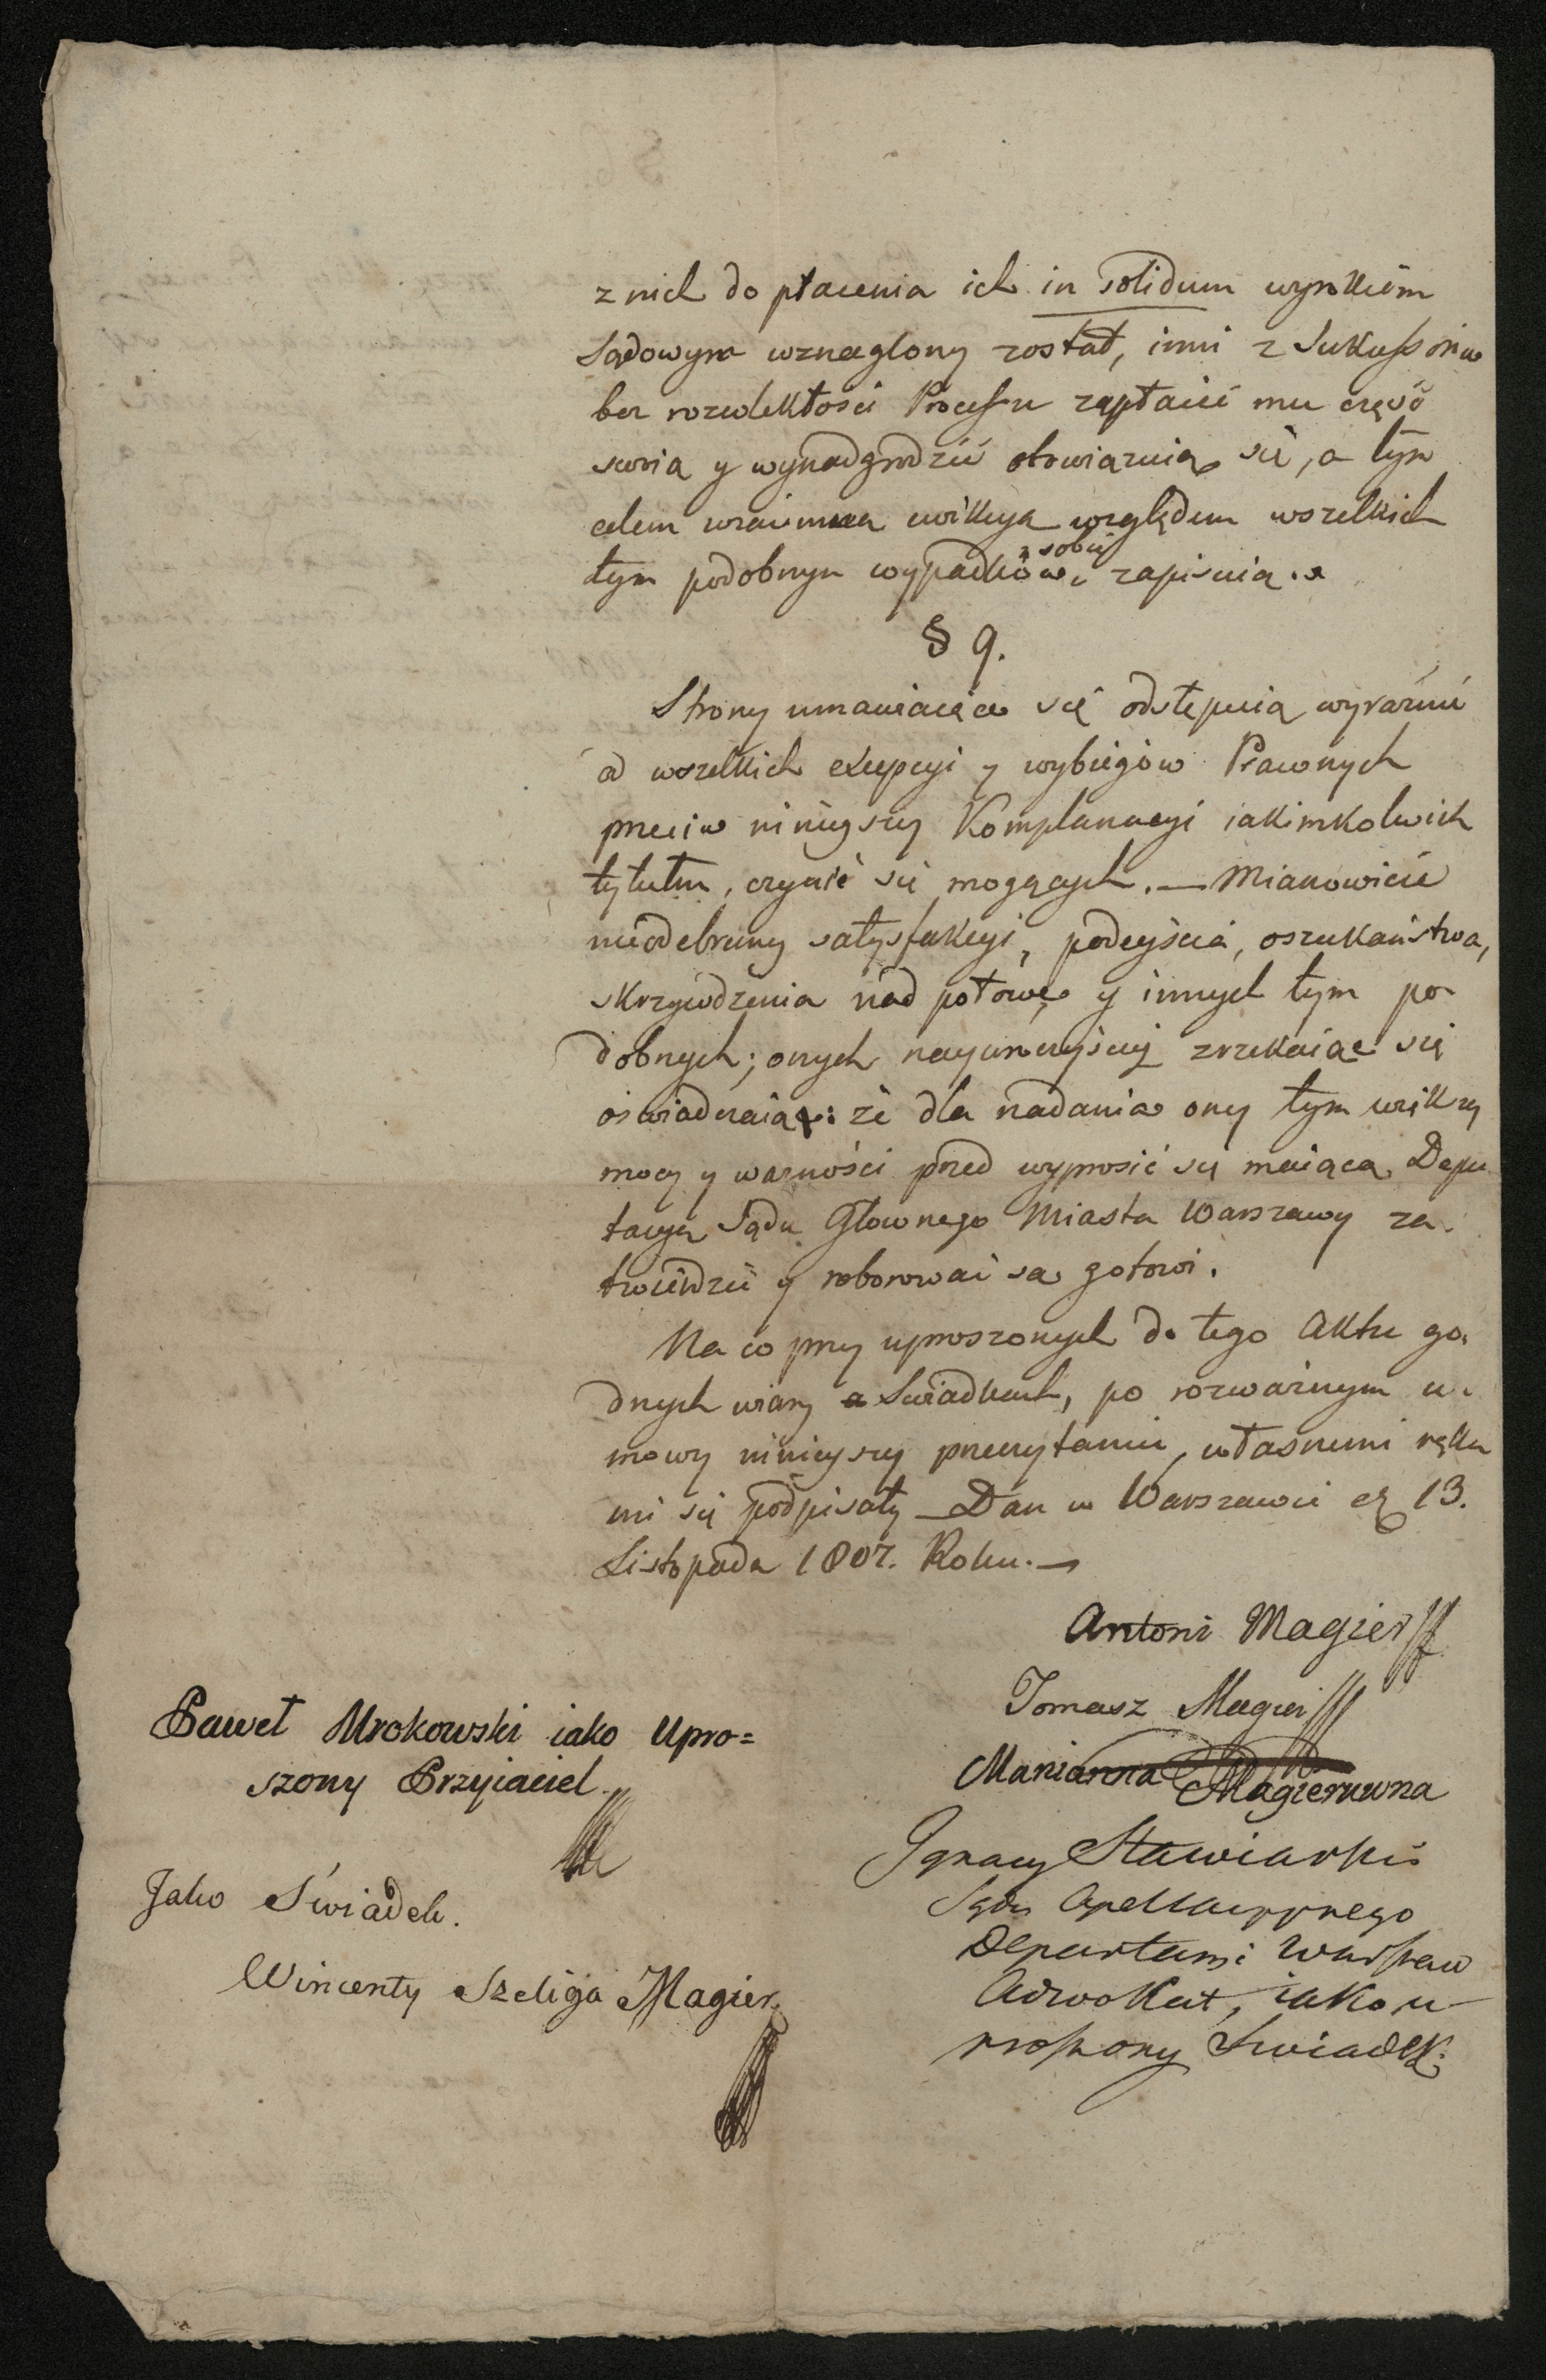 z nich do płacenia ich in solidum wyrokiem
Sądowym wznaglony został, inni z Sukceßorów
bez rozwlekłości Processu zapłacić mu część
swoią y wynadgrodzić obowiązuią się, a tym
celem wzaiemna ewikcyą względem wszelkich
tym podobnym wypadków z sobą zapisuią.
§ 9.
Strony umawiaiące się odstępuią wyraźnie
od wszelkich excepcyi y wybiegów Prawnych
przeciw ninieyszey Komplanacyi iakimkolwiek
tytułem, czynić się mogących. — Mianowicie
nieodebraney satysfakcyi, podeyścia, oszukaństwa,
skrzywdzenia nad połowę y innych tym po
dobnych; onych nayuroczyściey zrzekaiąc się
oświadczaią: że dla nadania oney tym większey
mocy y ważności przed wyprosić się maiącą Depu
tacyą Sądu Głownego Miasta Warszawy za
twierdzić y roborować są gotowi.
Na co przy uproszonych do tego Aktu go
dnych wiary Swiadkach, po rozważnym u
mowy ninieyszey przeczytaniu, własnemi ręka
mi się podpisały — Dan w Warszawie 13.
Listopada 1807. Roku. —
Antoni Magier
Tomasz Magier
Marianna Magierowna
Paweł Mrokowski iako Upro=
szony Przyiaciel.
Ignacy Stawiarski
Sądu Apellacyynego
Departam: Warszaw
Adwokat, iako u
proszony Swiadek.
Jako Swiadek.
Wincenty Szeliga Magier.